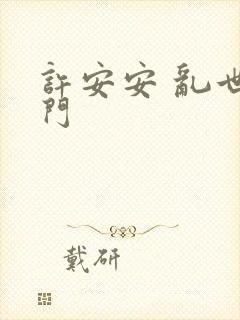 許安安 亂世
門
戴研